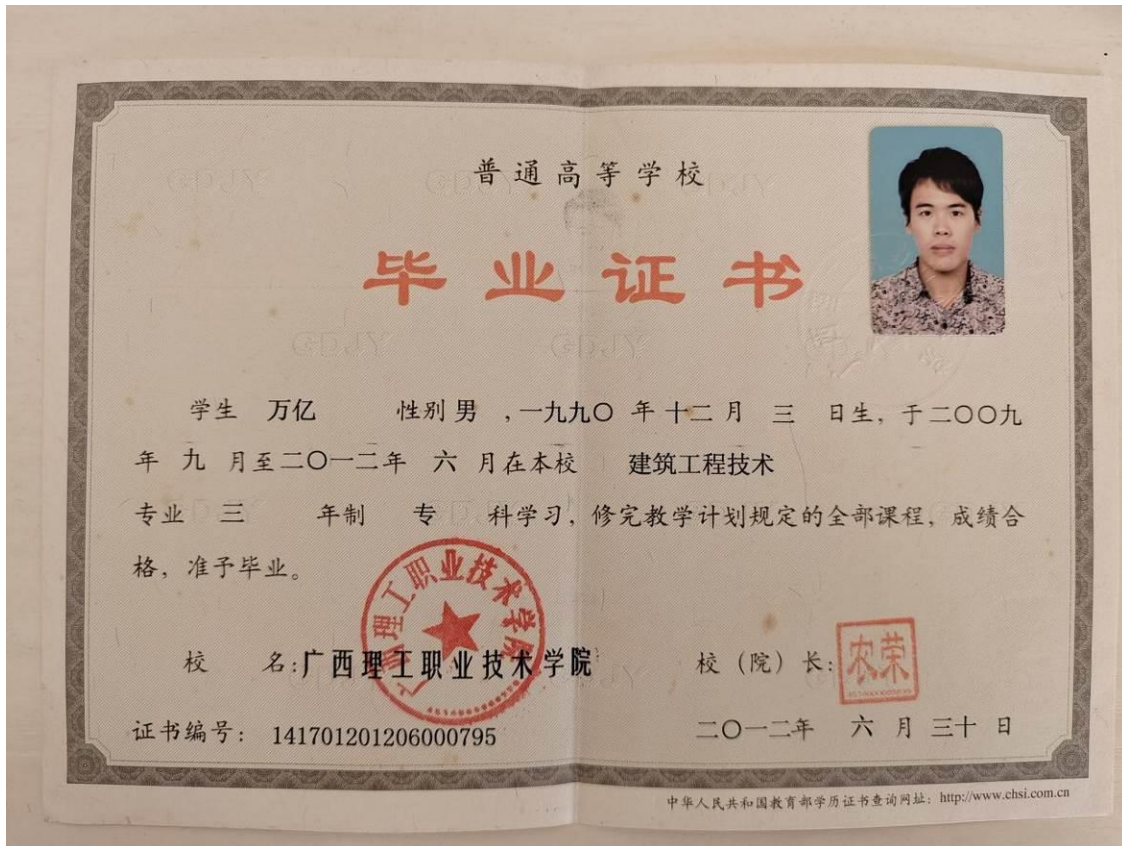 普通高等学校
毕业证书
学生 万亿 性别 男 ，一九九〇 年 十二 月 三 日生，于二〇〇九
年 九 月至二〇一二年 六 月在本校 建筑工程技术
专业 三 年制 专 科学习，修完教学计划规定的全部课程，成绩合
格，准予毕业。
广西理工职业技术学院
校 名：广西理工职业技术学院
校（院）长：农荣
证书编号： 141701201206000795
二〇一二年 六 月 三十 日
中华人民共和国教育部学历证书查询网址：http://www.chsi.com.cn